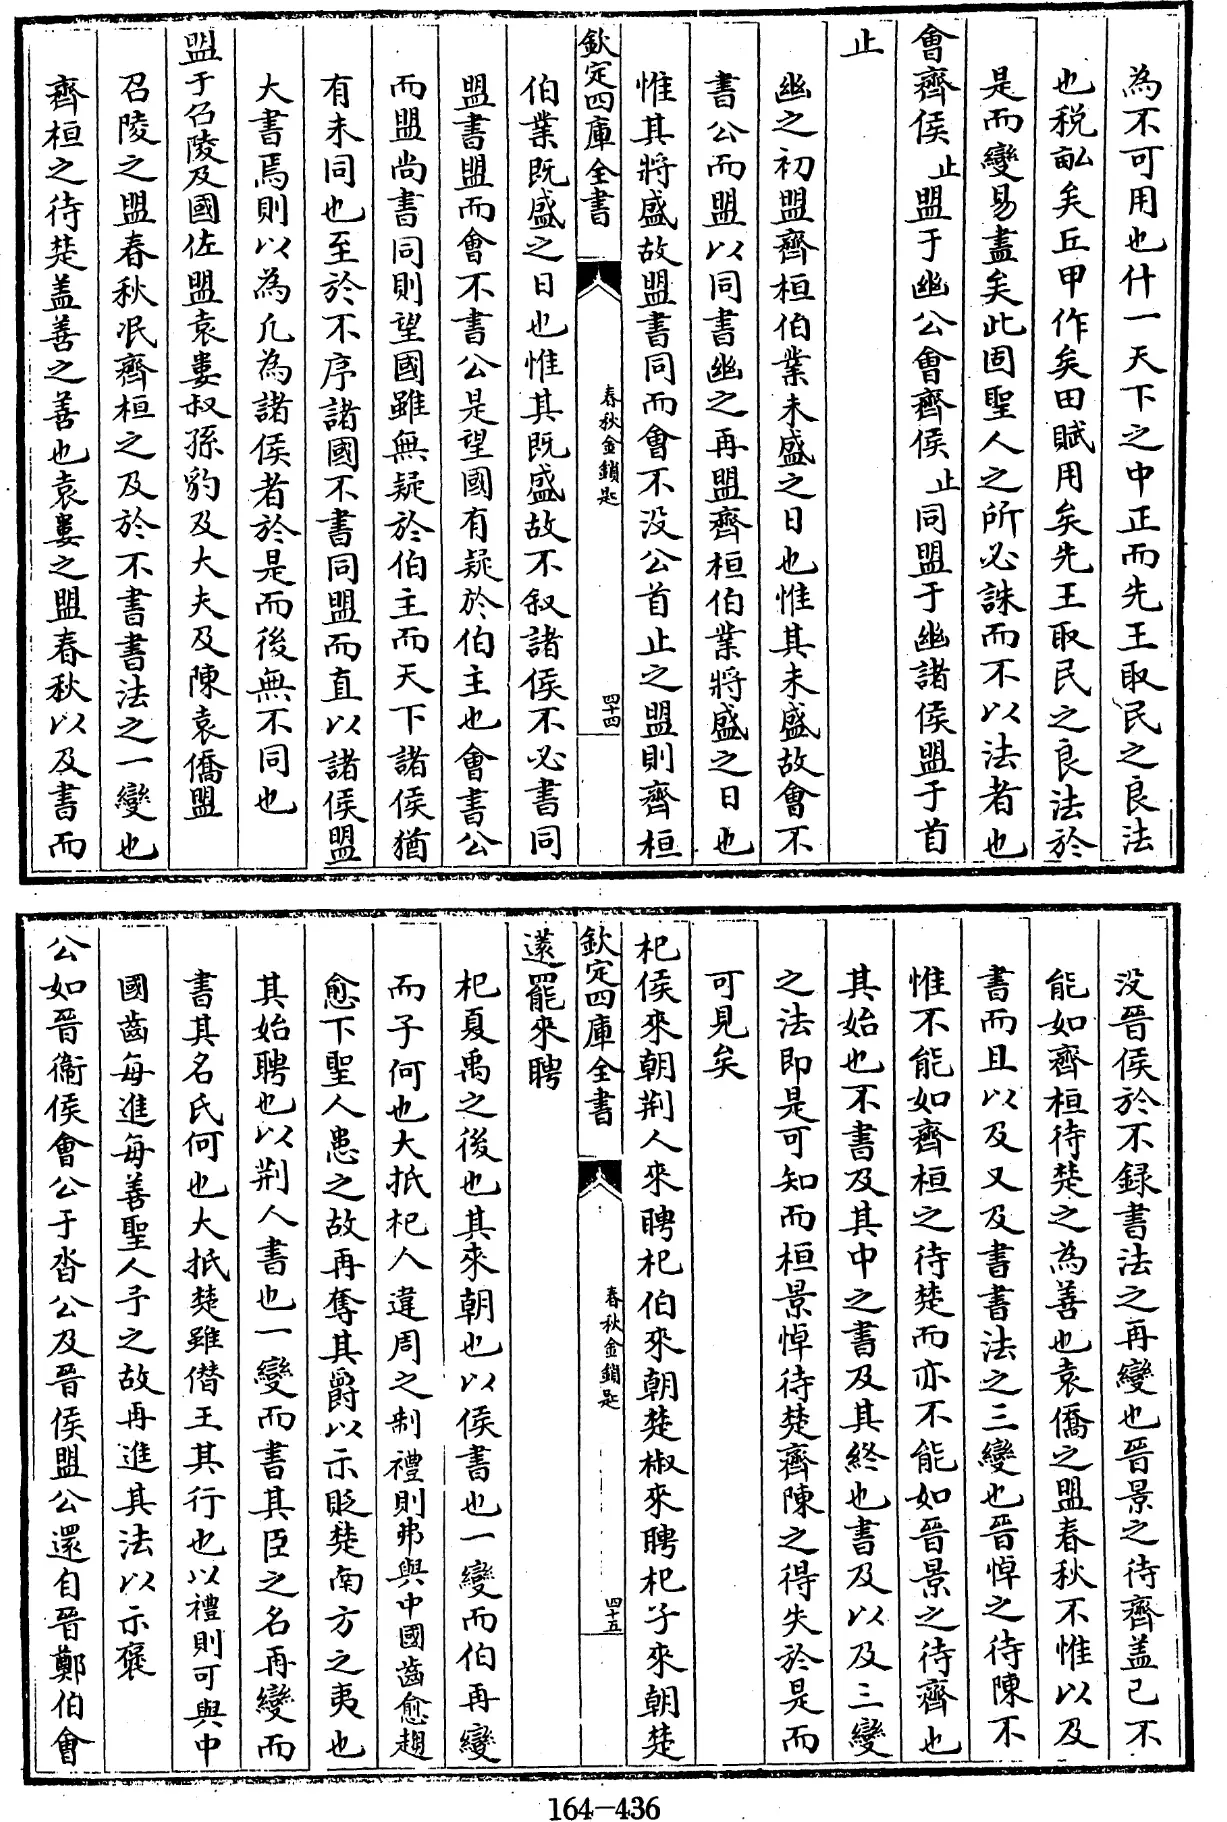 為不可用也什一天下之中正而先王取民之良法
也税畝矣丘甲作矣田賦用矣先王取民之良法於
是而變易盡矣此固聖人之所必誅而不以法者也
會齊侯止盟于幽公會齊侯止同盟于幽諸侯盟于首
止
幽之初盟齊桓伯業未盛之日也惟其未盛故會不
書公而盟以同書幽之再盟齊桓伯業將盛之日也
惟其將盛故盟書同而會不没公首止之盟則齊桓
欽定四庫全書
春秋金鎖匙
四十四
伯業既盛之日也惟其既盛故不叙諸侯不必書同
盟書盟而會不書公是望國有疑於伯主也會書公
而盟尚書同則望國雖無疑於伯主而天下諸侯猶
有未同也至於不序諸國不書同盟而直以諸侯盟
大書焉則以為凡為諸侯者於是而後無不同也
盟于召陵及國佐盟袁婁叔孫豹及大夫及陳袁僑盟
召陵之盟春秋泯齊桓之及於不書書法之一變也
齊桓之待楚盖善之善也袁婁之盟春秋以及書而
没晉侯於不録書法之再變也晉景之待齊盖已不
能如齊桓待楚之為善也袁僑之盟春秋不惟以及
書而且以及又及書書法之三變也晉悼之待陳不
惟不能如齊桓之待楚而亦不能如晉景之待齊也
其始也不書及其中之書及其終也書及以及三變
之法即是可知而桓景悼待楚齊陳之得失於是而
可見矣
杞侯來朝荆人來聘杞伯來朝楚椒來聘杞子來朝楚
欽定四庫全書
春秋金鎖匙
四十五
薳罷來聘
杞夏禹之後也其來朝也以侯書也一變而伯再變
而子何也大抵杞人違周之制禮則弗與中國齒愈趨
愈下聖人患之故再奪其爵以示貶楚南方之夷也
其始聘也以荆人書也一變而書其臣之名再變而
書其名氏何也大抵楚雖僣王其行也以禮則可與中
國齒每進每善聖人予之故再進其法以示褒
公如晉衞侯會公于沓公及晉侯盟公還自晉鄭伯會
164-436